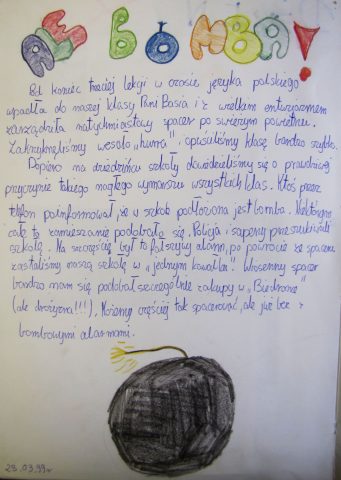 ALE BOMBA!
Pod koniec trzeciej lekcji w czasie języka polskiego
wpadła do naszej klasy Pani Basia i z wielkim entuzjazmem
zarządziła natychmiastowy spacer po świeżym powietrzu.
Zakrzyknęliśmy wesoło „hurra" i opuściliśmy klasę bardzo szybko.
Dopiero na dziedzińcu szkoły dowiedzieliśmy się o prawdziwej
przyczynie takiego nagłego wymarszu wszystkich klas. Ktoś przez
telefon poinformował, że w szkole podłożona jest bomba. Niektórym
całe to zamieszanie podobało się. Policja i saperzy przeszukiwali
szkołę. Na szczęście był to fałszywy alarm, po powrocie ze spaceru
zastaliśmy naszą szkołę w „jednym kawałku". Wiosenny spacer
bardzo nam się podobał szczególnie zakupy w „Biedronce"
(ale drożyzna!!!). Możemy częściej tak spacerować, ale już bez
bombowymi alarmami.
29.03.99r